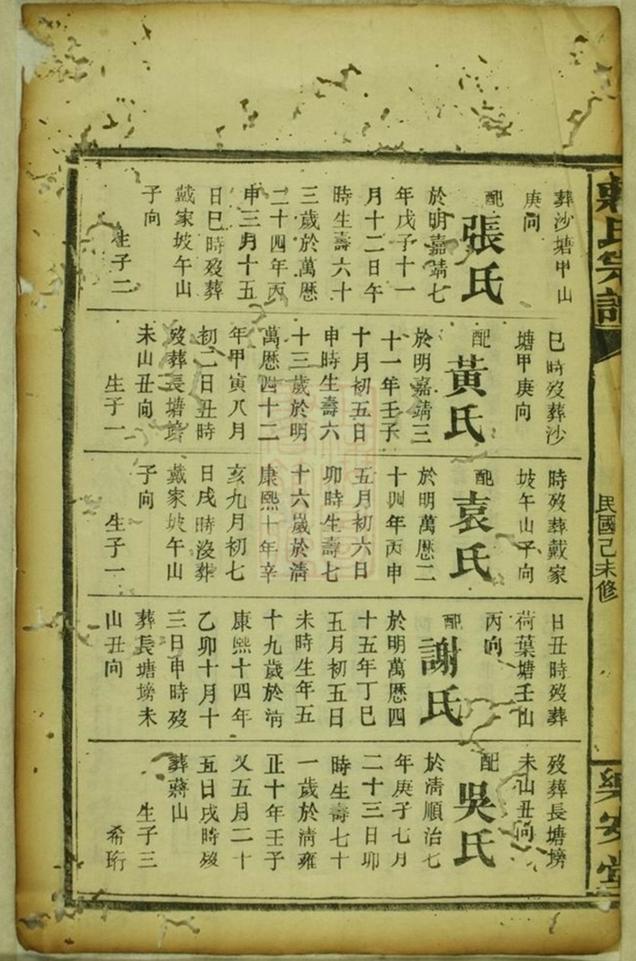 氏宗譜
民國己未修
樂安堂
葬沙塘甲山
庚向
配
張氏
於明嘉靖七
年戊子十一
月十二日午
時生壽六十
三歲於萬歷
二十四年丙
申三月十五
日巳時歿葬
戴家坡午山
子向
生子二
巳時歿葬沙
塘甲庚向
配
黃氏
於明嘉靖三
十一年壬子
十月初五日
申時生壽六
十三歲於明
萬歷四十二
年甲寅八月
初二日丑時
歿葬長塘塝
未山丑向
生子一
時歿葬戴家
坡午山子向
配
袁氏
於明萬歷二
十四年丙申
五月初六日
卯時生壽七
十六歲於清
康熙十年辛
亥九月初七
日戌時沒葬
戴家坡午山
子向
生子一
日丑時歿葬
荷葉塘壬山
丙向
配
謝氏
於明萬歷四
十五年丁巳
五月初五日
未時生年五
十九歲於清
康熙十四年
乙卯十月十
三日申時歿
葬長塘塝未
山丑向
歿葬長塘塝
未山丑向
配
吳氏
於清順治七
年庚子七月
二十三日卯
時生壽七十
一歲於清雍
正十年壬子
又五月二十
五日戌時歿
葬蔣山
生子三
希珩